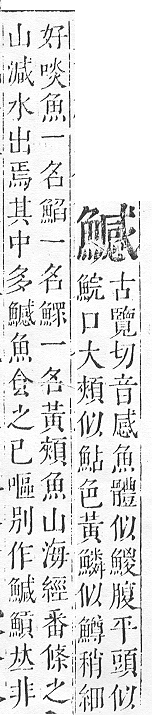 鱤
古覽切音感魚體似鯼腹平頭似
鯇口大頰似鮎色黃鱗似鱒稍細
好啖魚一名䱤一名鰥一名黃頰魚山海經番條之
山減水出焉其中多鱤魚食之已嘔別作鰔𠀤非